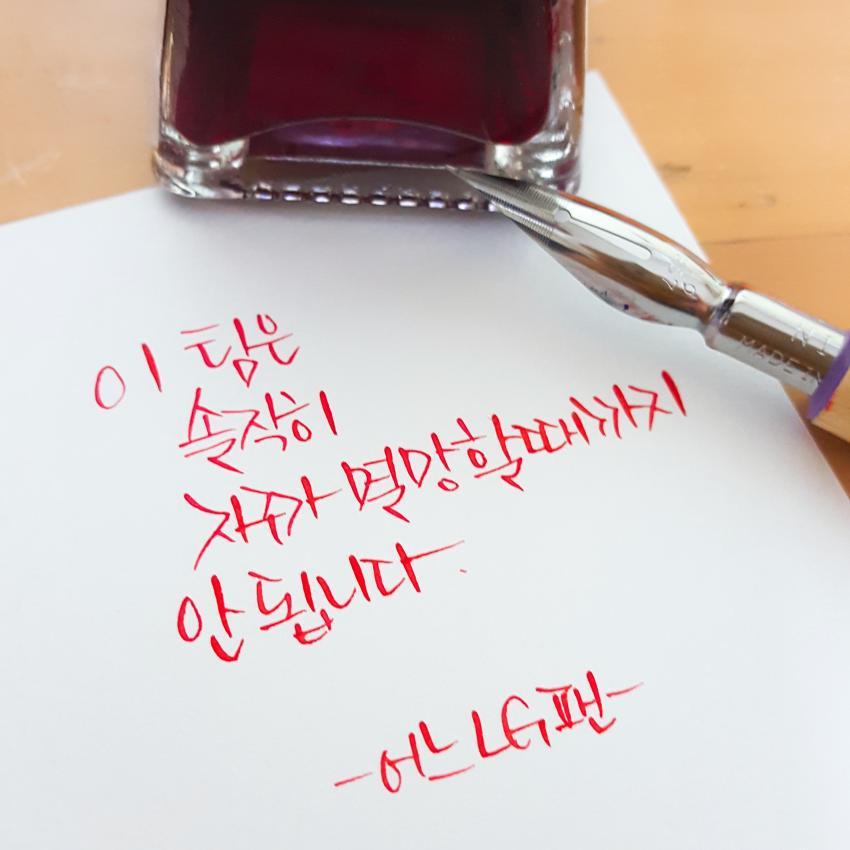 이 팀은
솔직히
지구가 멸망할때까지
안 됩니다.
-어느 LG팬-